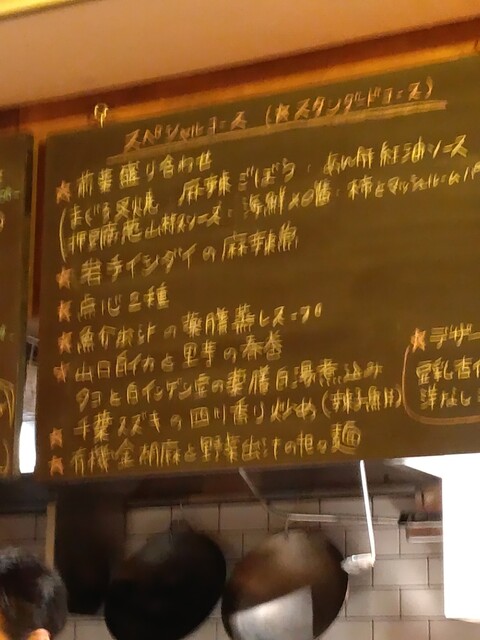 スペシャルコース (★スタンダードコース)
★前菜盛り合わせ
(まぐろ叉焼 麻辣ごぼう・あん肝紅油ソース
海鮮XO醤・柿とマッシュルーム
★岩手イシダイの麻辣
★点心二種
★魚介出汁の薬膳蒸しスープ
★出白イカと里芋の春巻
タラと白インゲン豆の薬膳白湯煮込み
★千葉スズキの四川香り炒め(辣子魚片)
★有機金胡麻と野菜出汁の担々麺
★デザー
豆乳杏仁
洋なし